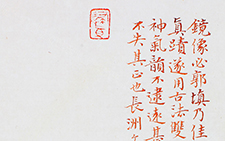 鏡像必郭填乃佳
真蹟遂用古法雙
神氣韻不逮遠甚
不失其正也長洲